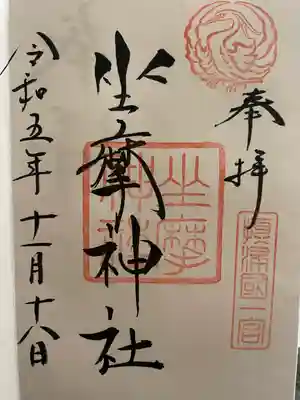 奉拝
摂津国一宮
坐摩神社
坐摩神社
令和五年十一月十八日